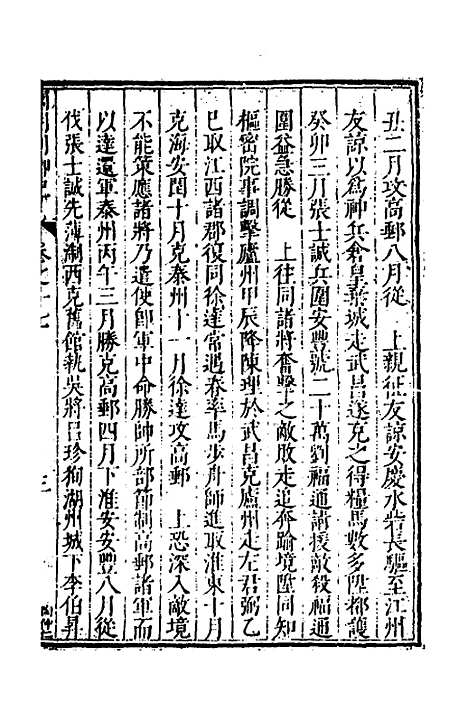 丑二月攻高郵八月從　上親征友諒安慶水砦長驅至江州
友諒以爲神兵倉皇棄城走武昌遂克之得糧馬數多陞都護
癸卯三月張士誠兵圍安豐號二十萬劉福通請援敵殺福通
圍益急勝從　上往同諸將奮擊之敵敗走追奔踰境陞同知
樞密院事調擊廬州甲辰降陳理於武昌克廬州走左君弼乙
巳取江西諸郡復同徐達常遇春率馬步舟師進取淮東十月
克海安閏十月克泰州十一月徐達攻高郵　上恐深入敵境
不能策應諸將乃遣使卽軍中命勝師所部節制高郵諸軍而
以達還軍泰州丙午三月勝克高郵四月下淮安安豐八月從
伐張士誠先薄湖西克舊館執吳將呂珍徇湖州城下李伯昇
卷之十七
三